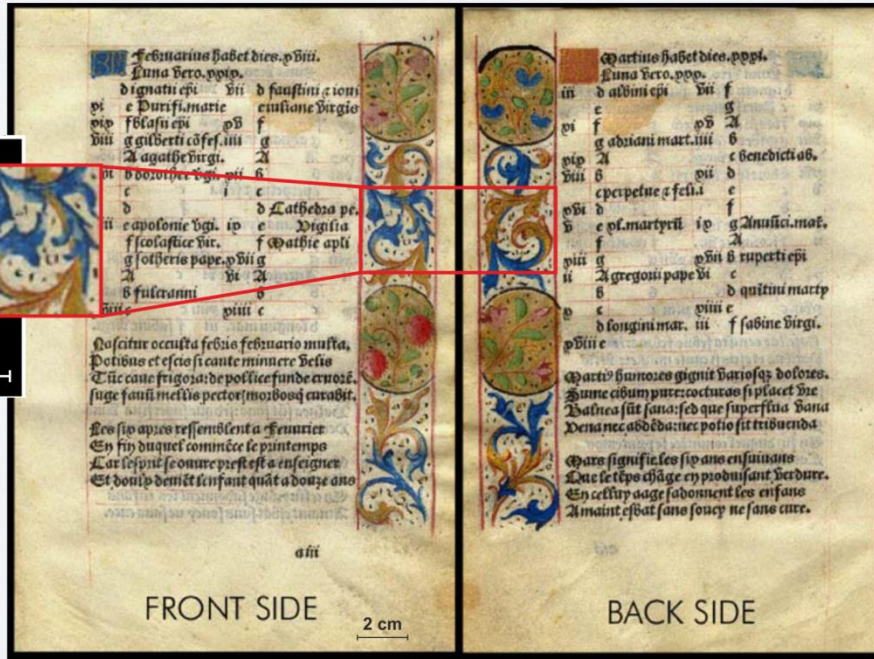 Februarius habet dies.xxviii.
Luna vero.xxix.
d ignatii epi vii d faustini ⁊ ioui
xi e Purifi.marie e iuliane virgis
xix f blasii epi xv f
viii g gilberti cõfes.iiii g
A agathe virgi. A
xvi b dorothee vgi.xii b
c i c
d d Cathedra pe.
iii e apolonie vgi. ix e Vigilia
f scolastice vir. f Mathie apli
g sotheris pape.xvii g
A vi A
b fulcranni b
xiiii c
Nascitur occulta febris februario multa.
Potibus et escis si caute minuere velis
Tũc caue frigora: de pollice funde cruorẽ.
suge fauũ mellis pectoris morbosq curabit.
Les six apres ressemblent a Feurier
En fin duquel commẽce le printemps
Car lesprit se ouure prest est a enseigner
Et doulx deuiẽt lenfant quãt a douze ans
aiii
FRONT SIDE
2 cm
Martius habet dies.xxxi.
Luna vero.xxx.
iii d albini epi vii f
e g
xi f xv A
g adriani mart.iiii b
xix A c benedicti ab.
viii b xii d
c perpetue ⁊ feli.i e
xvi d f
v e xl.martyrũ ix g Anũci.mat.
f A
xiii g xvii b ruperti epi
ii A gregorii pape vi c
b d quitini marty
x c xiiii e
d longini mar. iii f sabine virgi.
xviii e
Martis humores gignit variosqz dolores.
Sume cibum pure: cocturas si placet vre
Balnea sũt sana: sed que superflua vana
Vena nec abdẽda: nec potio sit tribuenda
Mars signifie les six ans ensuiuans
Que le tẽps chãge en produisant verdure.
En celluy aage sadonnent les enfans
A maint esbat sans soucy ne sans cure.
BACK SIDE